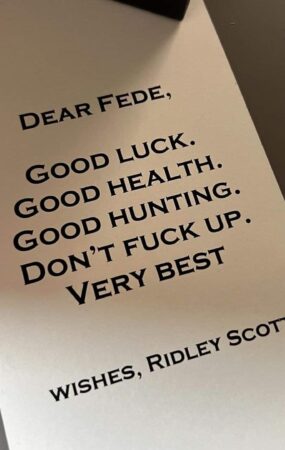 DEAR FEDE,
GOOD LUCK.
GOOD HEALTH.
GOOD HUNTING.
DON'T FUCK UP.
VERY BEST
WISHES, RIDLEY SCOTT